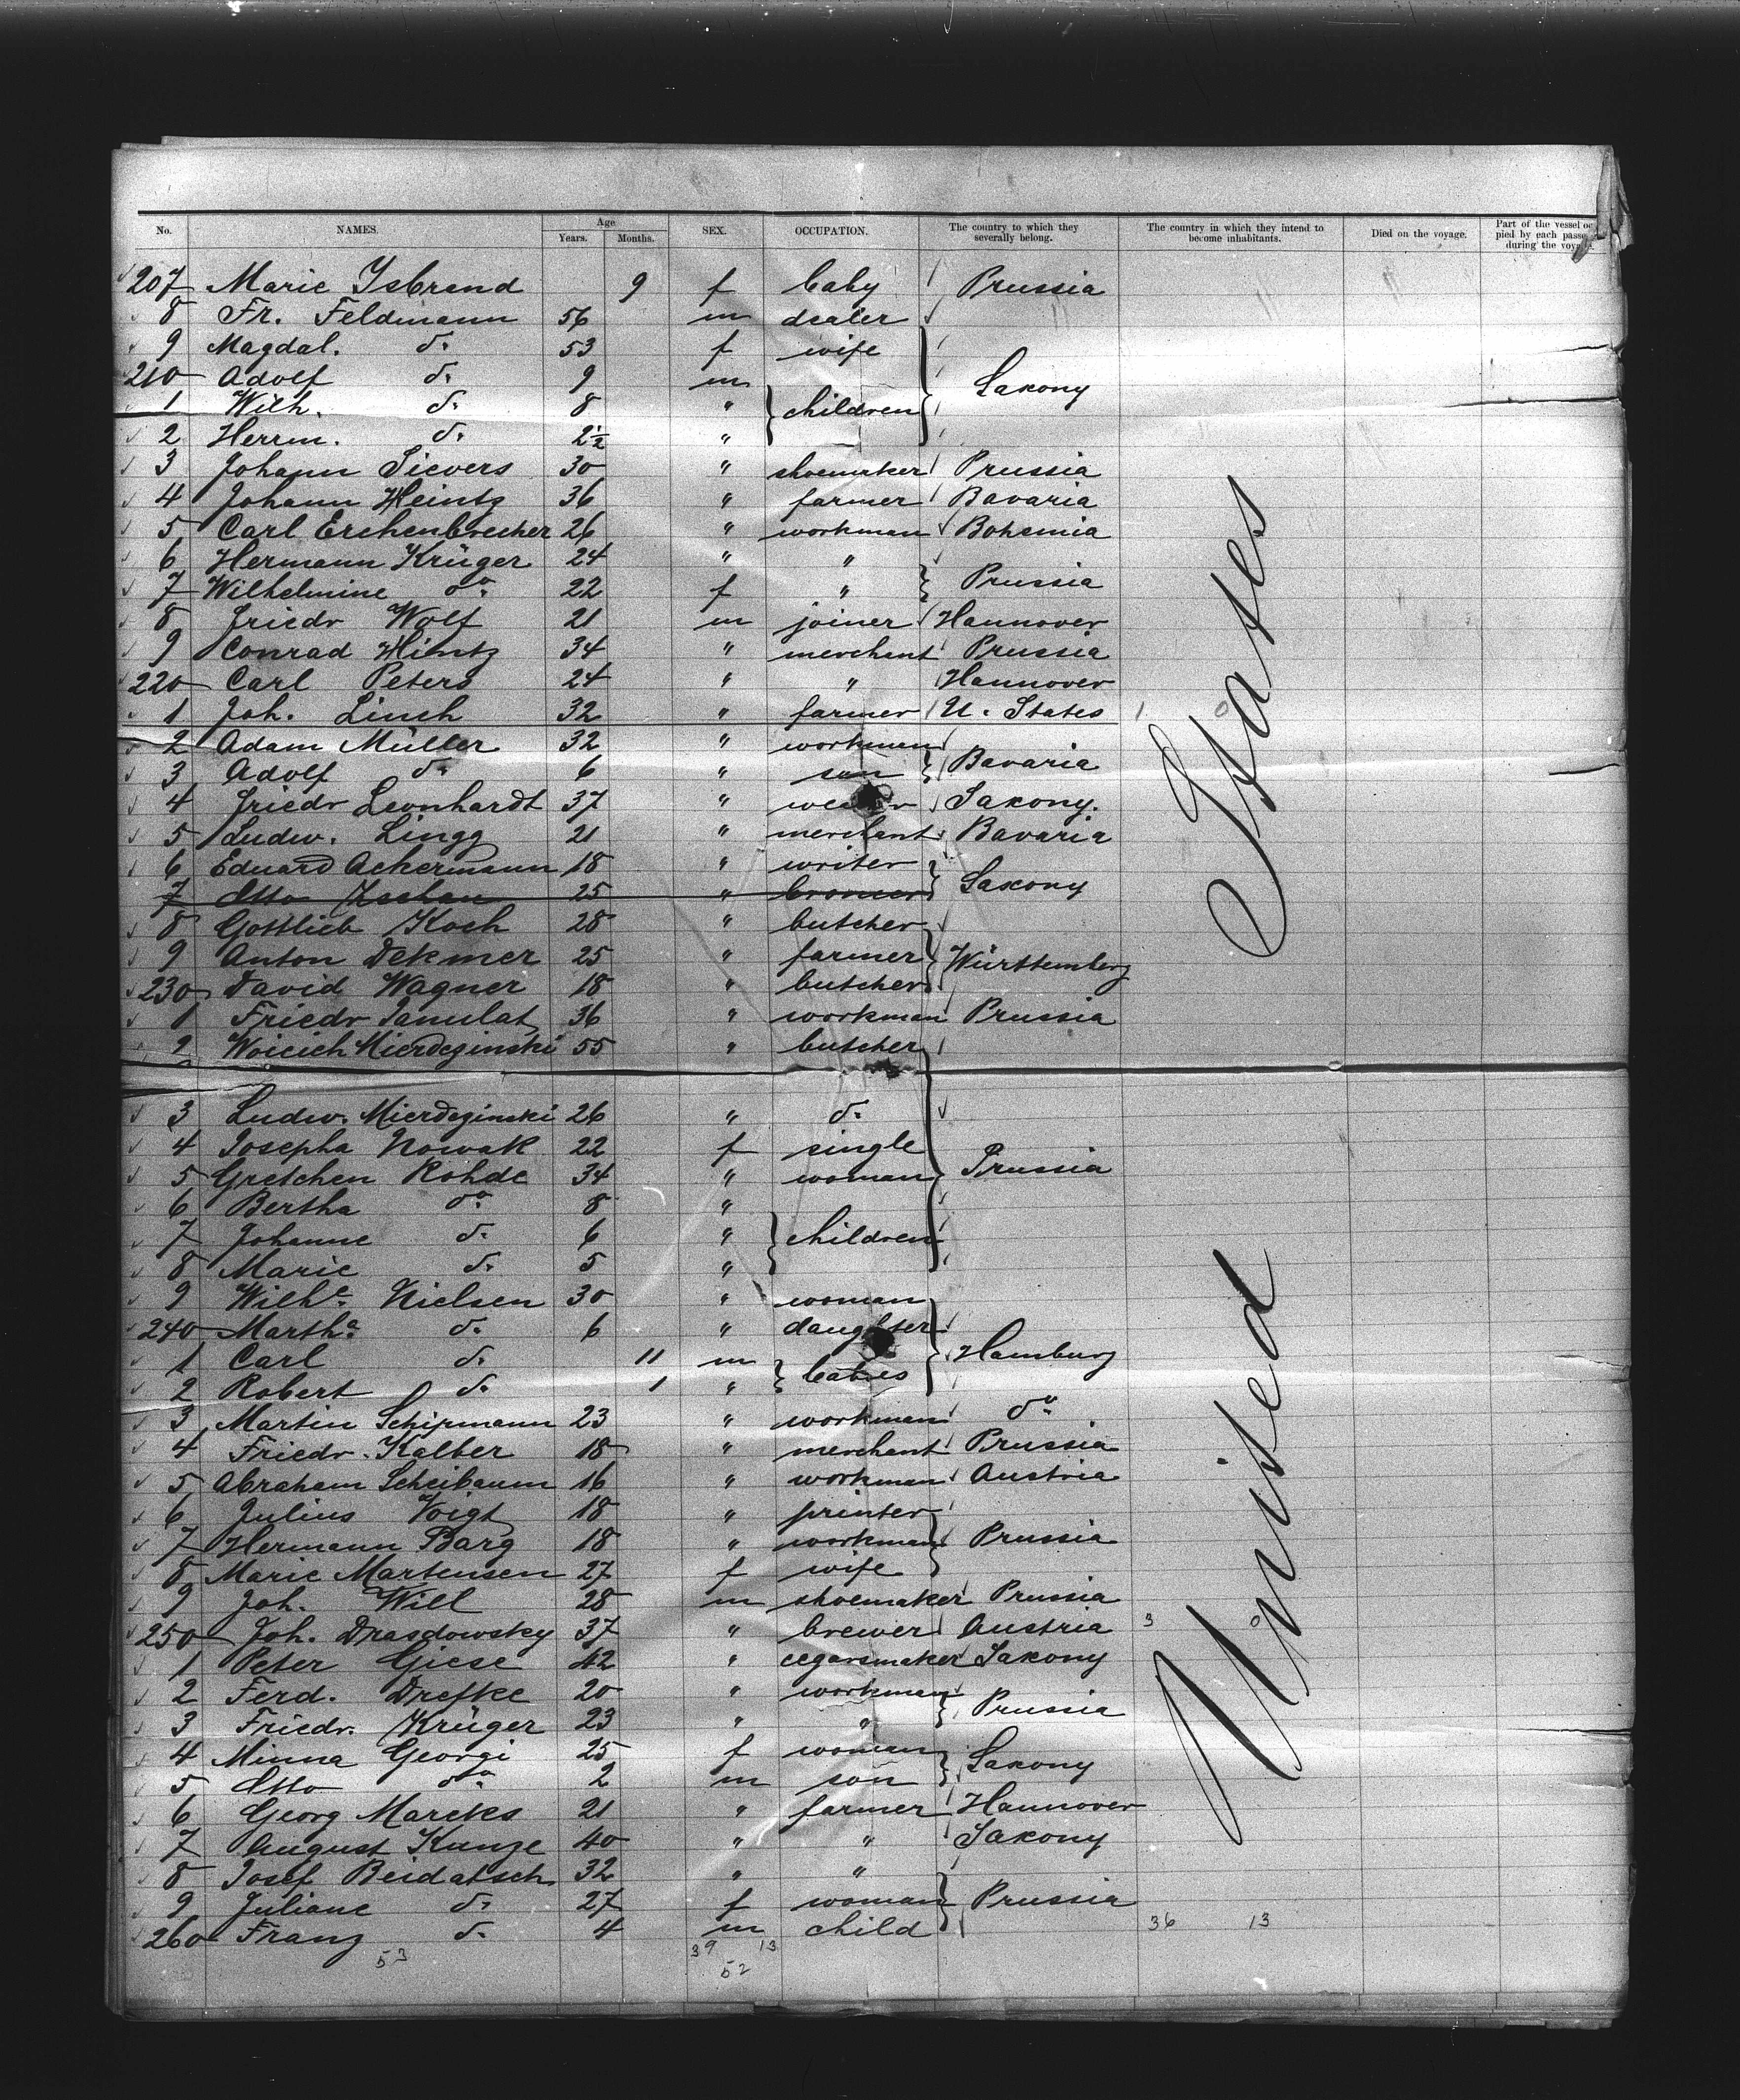 No. NAMES. Age Years. Months. SEX. OCCUPATION. The country to which they severally belong. The country in which they intend to become inhabitants. Died on the voyage. Part of the vessel oc pied by each passe during the voyage.
207 Marie Isbrand 9 f baby Prussia
8 Fr. Feldmann 56 m dealer
9 Magdal. do. 53 f wife
210 Adolf do. 9 m Saxony
1 Wilh. do. 8 " children
2 Herrm. do. 2½ "
3 Johann Sievers 30 " shoemaker Prussia
4 Johann Heintz 36 " farmer Bavaria
5 Carl Erchenbrecher 26 " workman Bohemia
6 Hermann Krüger 24 " "
7 Wilhelmine do. 22 f " Prussia
8 Friedr Wolf 21 m joiner Hannover
9 Conrad Hintz 34 " merchant Prussia
220 Carl Peters 24 " " Hannover
1 Joh. Linch 32 " farmer U. States 1 0
2 Adam Müller 32 " workman
3 Adolf do. 6 " son Bavaria
4 Friedr Leonhardt 37 " Saxony.
5 Ludw. Lingg 21 " merchant Bavaria
6 Eduard Ackermann 18 " writer
7 Otto Zschau 25 " Saxony
8 Gottlieb Koch 28 " butcher
9 Anton Dekmer 25 " farmer Württemberg
230 David Wagner 18 " butcher
1 Friedr Janulat 36 " workman Prussia
2 Woicich Mierdeginski 55 " butcher
3 Ludw. Mierdeginski 26 " do.
4 Josepha Nowak 22 f single
5 Gretchen Rohde 34 " woman Prussia
6 Bertha do. 8 "
7 Johanne do. 6 " children
8 Marie do. 5 "
9 Wilhe. Nielsen 30 " woman
240 Martha do. 6 " daughter
1 Carl do. 11 m Hamburg
2 Robert do. 1 " babies
3 Martin Schipmann 23 " workman do.
4 Friedr. Kalber 18 " merchant Prussia
5 Abraham Scheibaum 16 " workman Austria
6 Julius Voigt 18 " printer
7 Hermann Barg 18 " workman Prussia
8 Marie Martensen 27 f wife
9 Joh. Will 28 m shoemaker Prussia
250 Joh. Drasdowsky 37 " brewer Austria 3 0
1 Peter Giese 42 " cegarsmaker Saxony
2 Ferd. Drefke 20 " workman
3 Friedr. Krüger 23 " " Prussia
4 Minna Georgi 25 f woman Saxony
5 Otto do. 2 m son
6 Georg Marcks 21 " farmer Hannover
7 August Kunze 40 " " Saxony
8 Josef Beidatsch 32 " "
9 Juliane do. 27 f woman Prussia
260 Franz do. 4 m child 36 13
53 39 13
52
United States